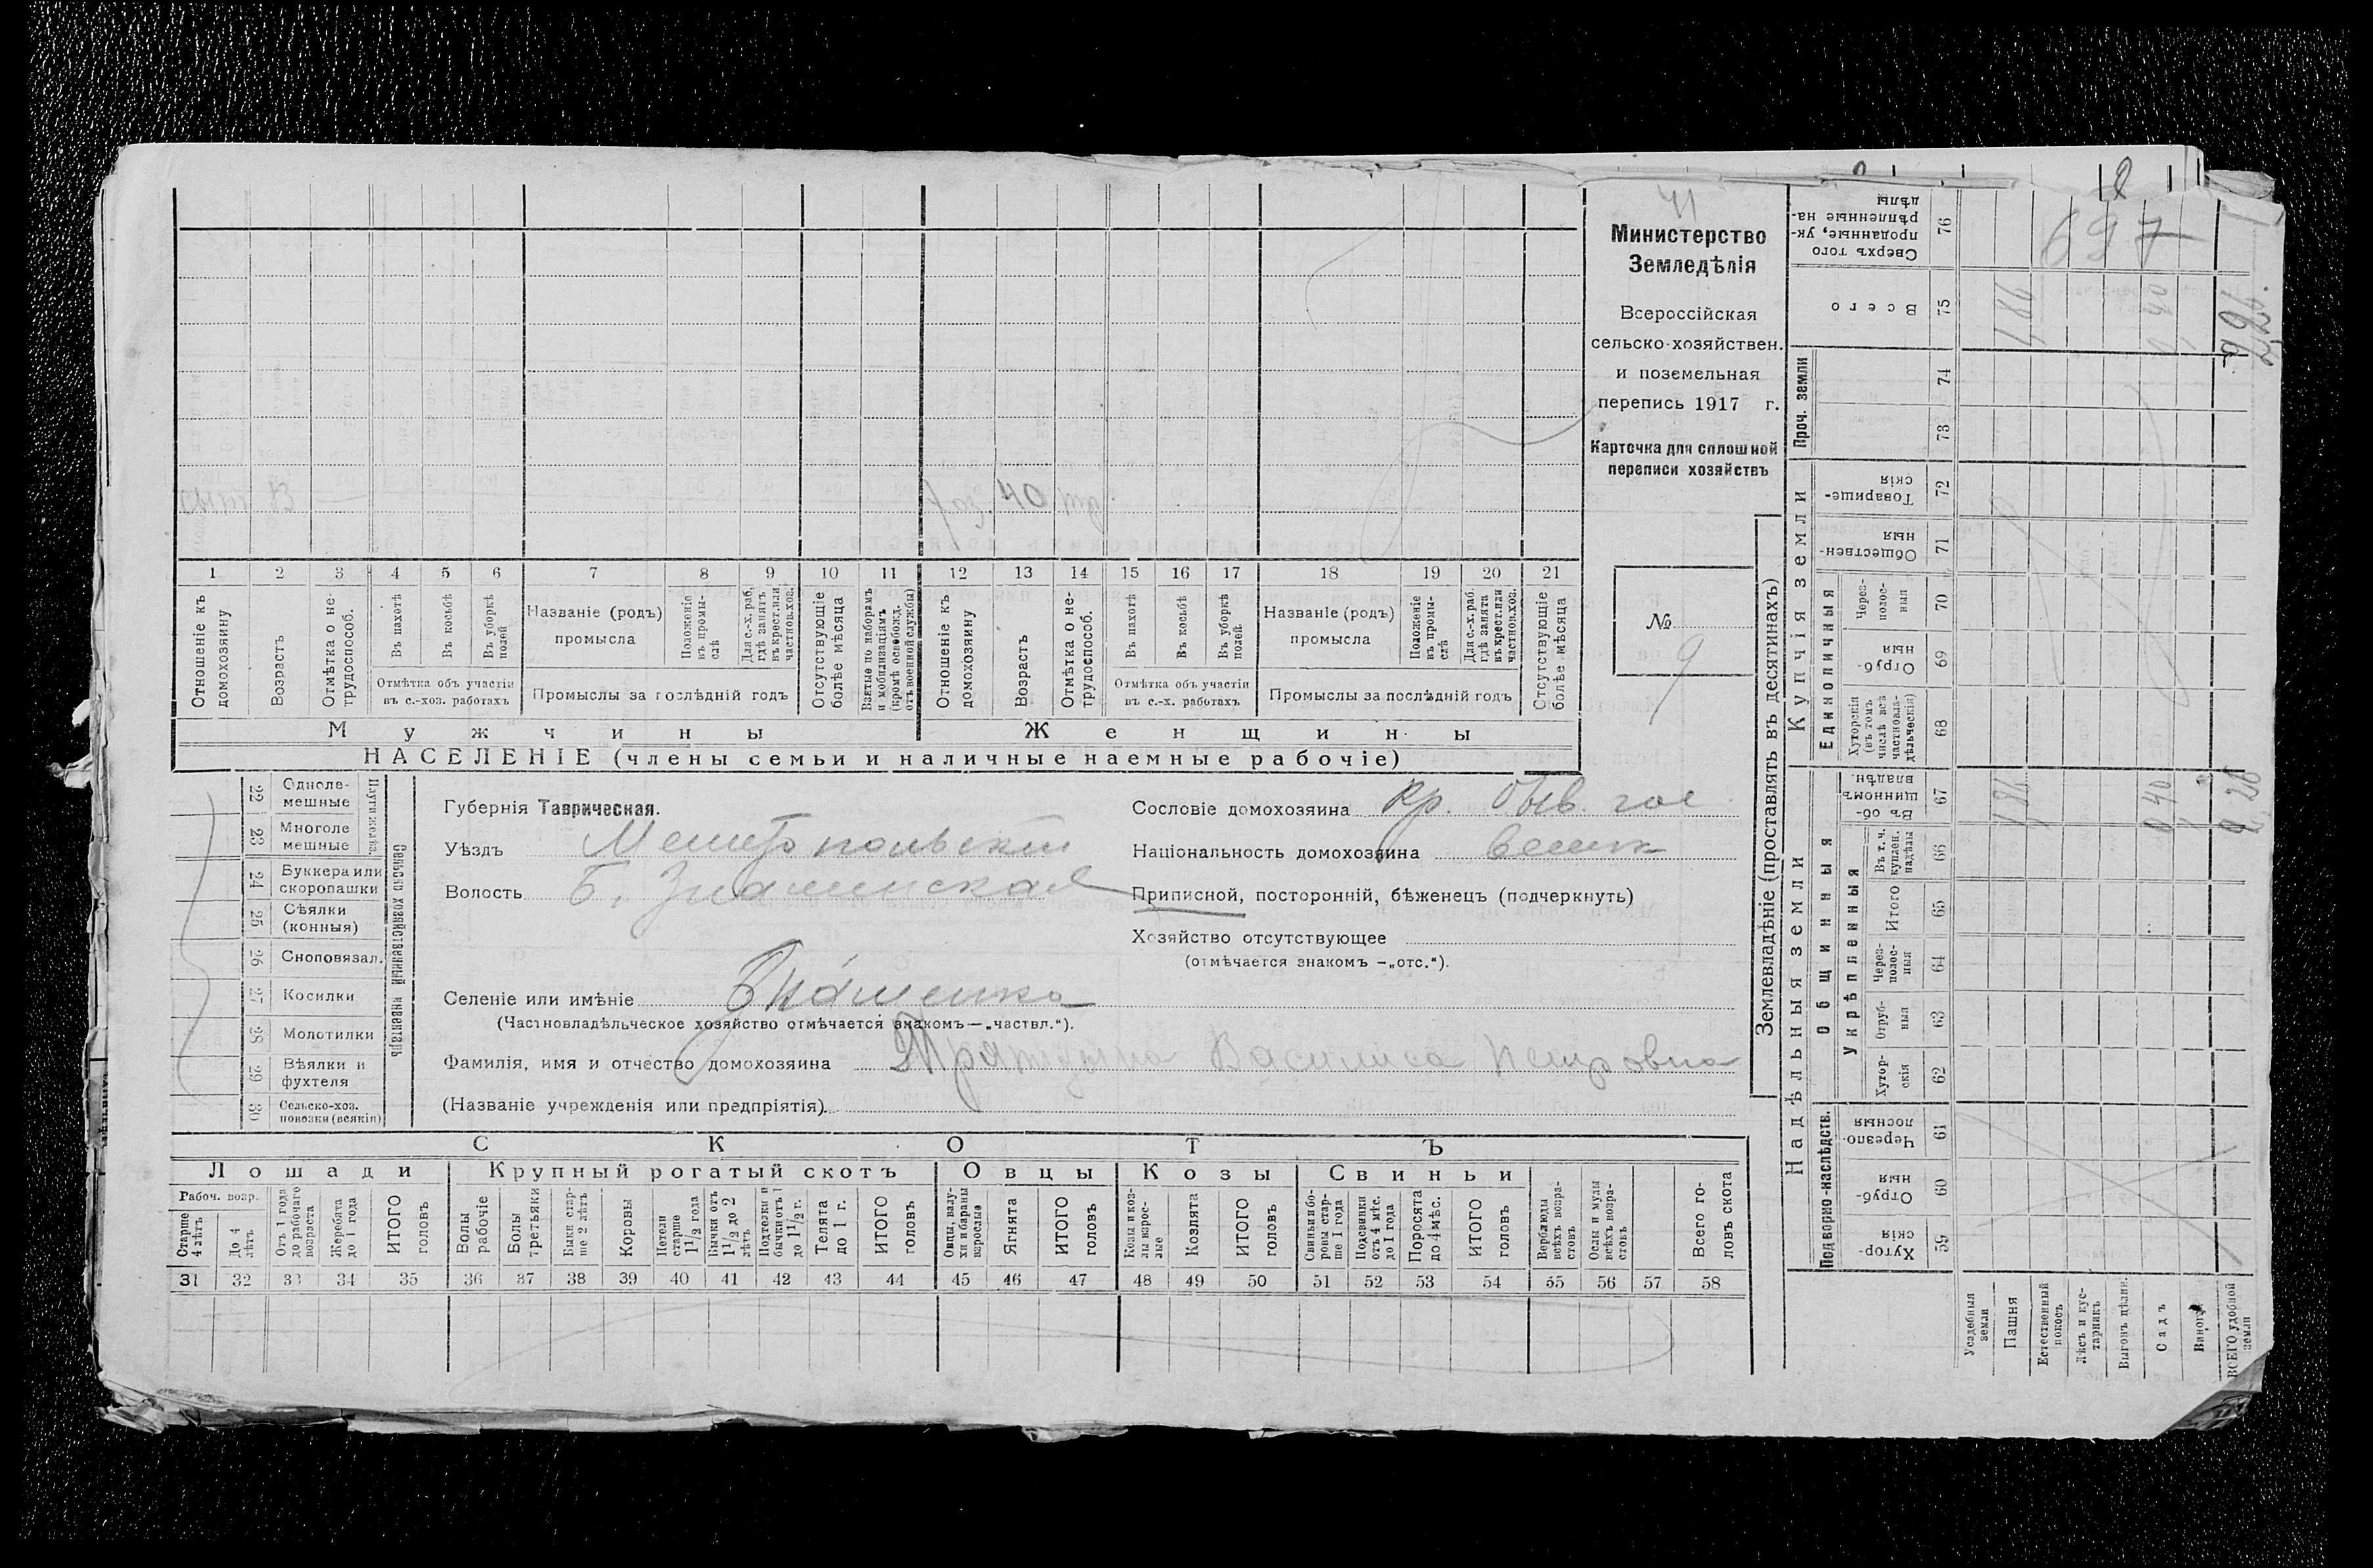 41
Министерство
Земледѣлія
Всероссійская
сельско-хозяйствен.
и поземельная
перепись 1917 г.
Карточка для сплошной
переписи хозяйствъ
№ 9
сын 13
хоз. 40
1 2 3 4 5 6 7 8 9 10 11 12 13 14 15 16 17 18 19 20 21
Отношеніе къ домохозяину
Возрастъ
Отмѣтка о не-трудоспособ.
Въ пахотѣ
Въ косьбѣ
Въ уборкѣ полей
Отмѣтка объ участіи въ с.-хоз. работахъ
Названіе (родъ) промысла
Положеніе въ промы-слѣ
Для с.-х. раб. гдѣ занятъ въ крест. или частнов. хоз.
Промыслы за послѣдній годъ
Отсутствующіе болѣе мѣсяца
Взятые по наборамъ и мобилизаціямъ (кромѣ освобожд. отъ военной службы)
Отношеніе къ домохозяину
Возрастъ
Отмѣтка о не-трудоспособ.
Въ пахотѣ
Въ косьбѣ
Въ уборкѣ полей.
Отмѣтка объ участіи въ с.-х. работахъ
Названіе (родъ) промысла
Положеніе въ промы-слѣ
Для с.-х. раб. гдѣ занята въ крес. или частнов. хоз.
Промыслы за послѣдній годъ
Отсутствующіе болѣе мѣсяца
Мужчины Женщины
НАСЕЛЕНІЕ (члены семьи и наличные наемные рабочіе)
22 Одноле-мешные
23 Многоле мешные
Плуги желѣз.
24 Буккера или скоропашки
25 Сѣялки (конныя)
26 Сноповязал.
27 Косилки
28 Молотилки
29 Вѣялки и фухтеля
30 Сельско-хоз. повозки (всякія)
Сельско хозяйственный инвентарь
Губернія Таврическая.
Уѣздъ Мелитопольскій
Волость Б. Знаменская
Селеніе или имѣніе Знаменка
(Частновладѣльческое хозяйство отмѣчается знакомъ—„частвл.“).
Фамилія, имя и отчество домохозяина Василиса Петровна
(Названіе учрежденія или предпріятія)
Сословіе домохозяина Кр. быв. гос
Національность домохозяина
Приписной, посторонній, бѣженецъ (подчеркнуть)
Хозяйство отсутствующее
(отмѣчается знакомъ —„отс.“).
СКОТЪ
Лошади Крупный рогатый скотъ Овцы Козы Свиньи
Рабоч. возр.
Старше 4 лѣтъ
До 4 лѣтъ
Отъ 1 года до рабочаго возраста
Жеребята до 1 года
ИТОГО головъ
Волы рабочіе
Волы третьяки
Быки стар-ше 2 лѣтъ
Коровы
Нетели старше 1 1/2 года
Бычки отъ 1 1/2 до 2 лѣтъ
Подтелки и бычки отъ 1 до 1 1/2 г.
Телята до 1 г.
ИТОГО головъ
Овцы, валу-хи и бараны взрослые
Ягнята
ИТОГО головъ
Козы и коз-лы взрос-лые
Козлята
ИТОГО головъ
Свиньи и бо-ровы стар-ше 1 года
Подсвинки отъ 4 мѣс. до 1 года
Поросята до 4 мѣс.
ИТОГО головъ
Верблюды всѣхъ возра-стовъ
Ослы и мулы всѣхъ возра-стовъ
Всего го-ловъ скота
31 32 33 34 35 36 37 38 39 40 41 42 43 44 45 46 47 48 49 50 51 52 53 54 55 56 57 58
Землевладѣніе (проставлять въ десятинахъ)
Надѣльныя земли
Купчія земли
Проч. земли
Подворно-наслѣдств.
Общинныя
Укрѣпленныя
Единоличныя
Сверхъ того проданные, ук-рѣпленные на-дѣлы 76
697
Всего 75
74
73
Товарище-скія 72
Обществен-ныя 71
Через-полос-ныя 70
Отруб-ныя 69
Хуторскія (въ томъ числѣ всѣ частновла-дѣльческія) 68
Въ об-щинномъ владѣн. 67
Въ т. ч. куплен. надѣлы 66
Итого 65
Через-полос-ныя 64
Отруб-ныя 63
Хутор-скія 62
Черезпо-лосныя 61
Отруб-ныя 60
Хутор-скія 59
Усадебныя земли
Пашня
Естественный покосъ
Лѣсъ и кус-тарникъ
Выгонъ цѣлин.
Садъ
Виногр.
ВСЕГО удобной земли